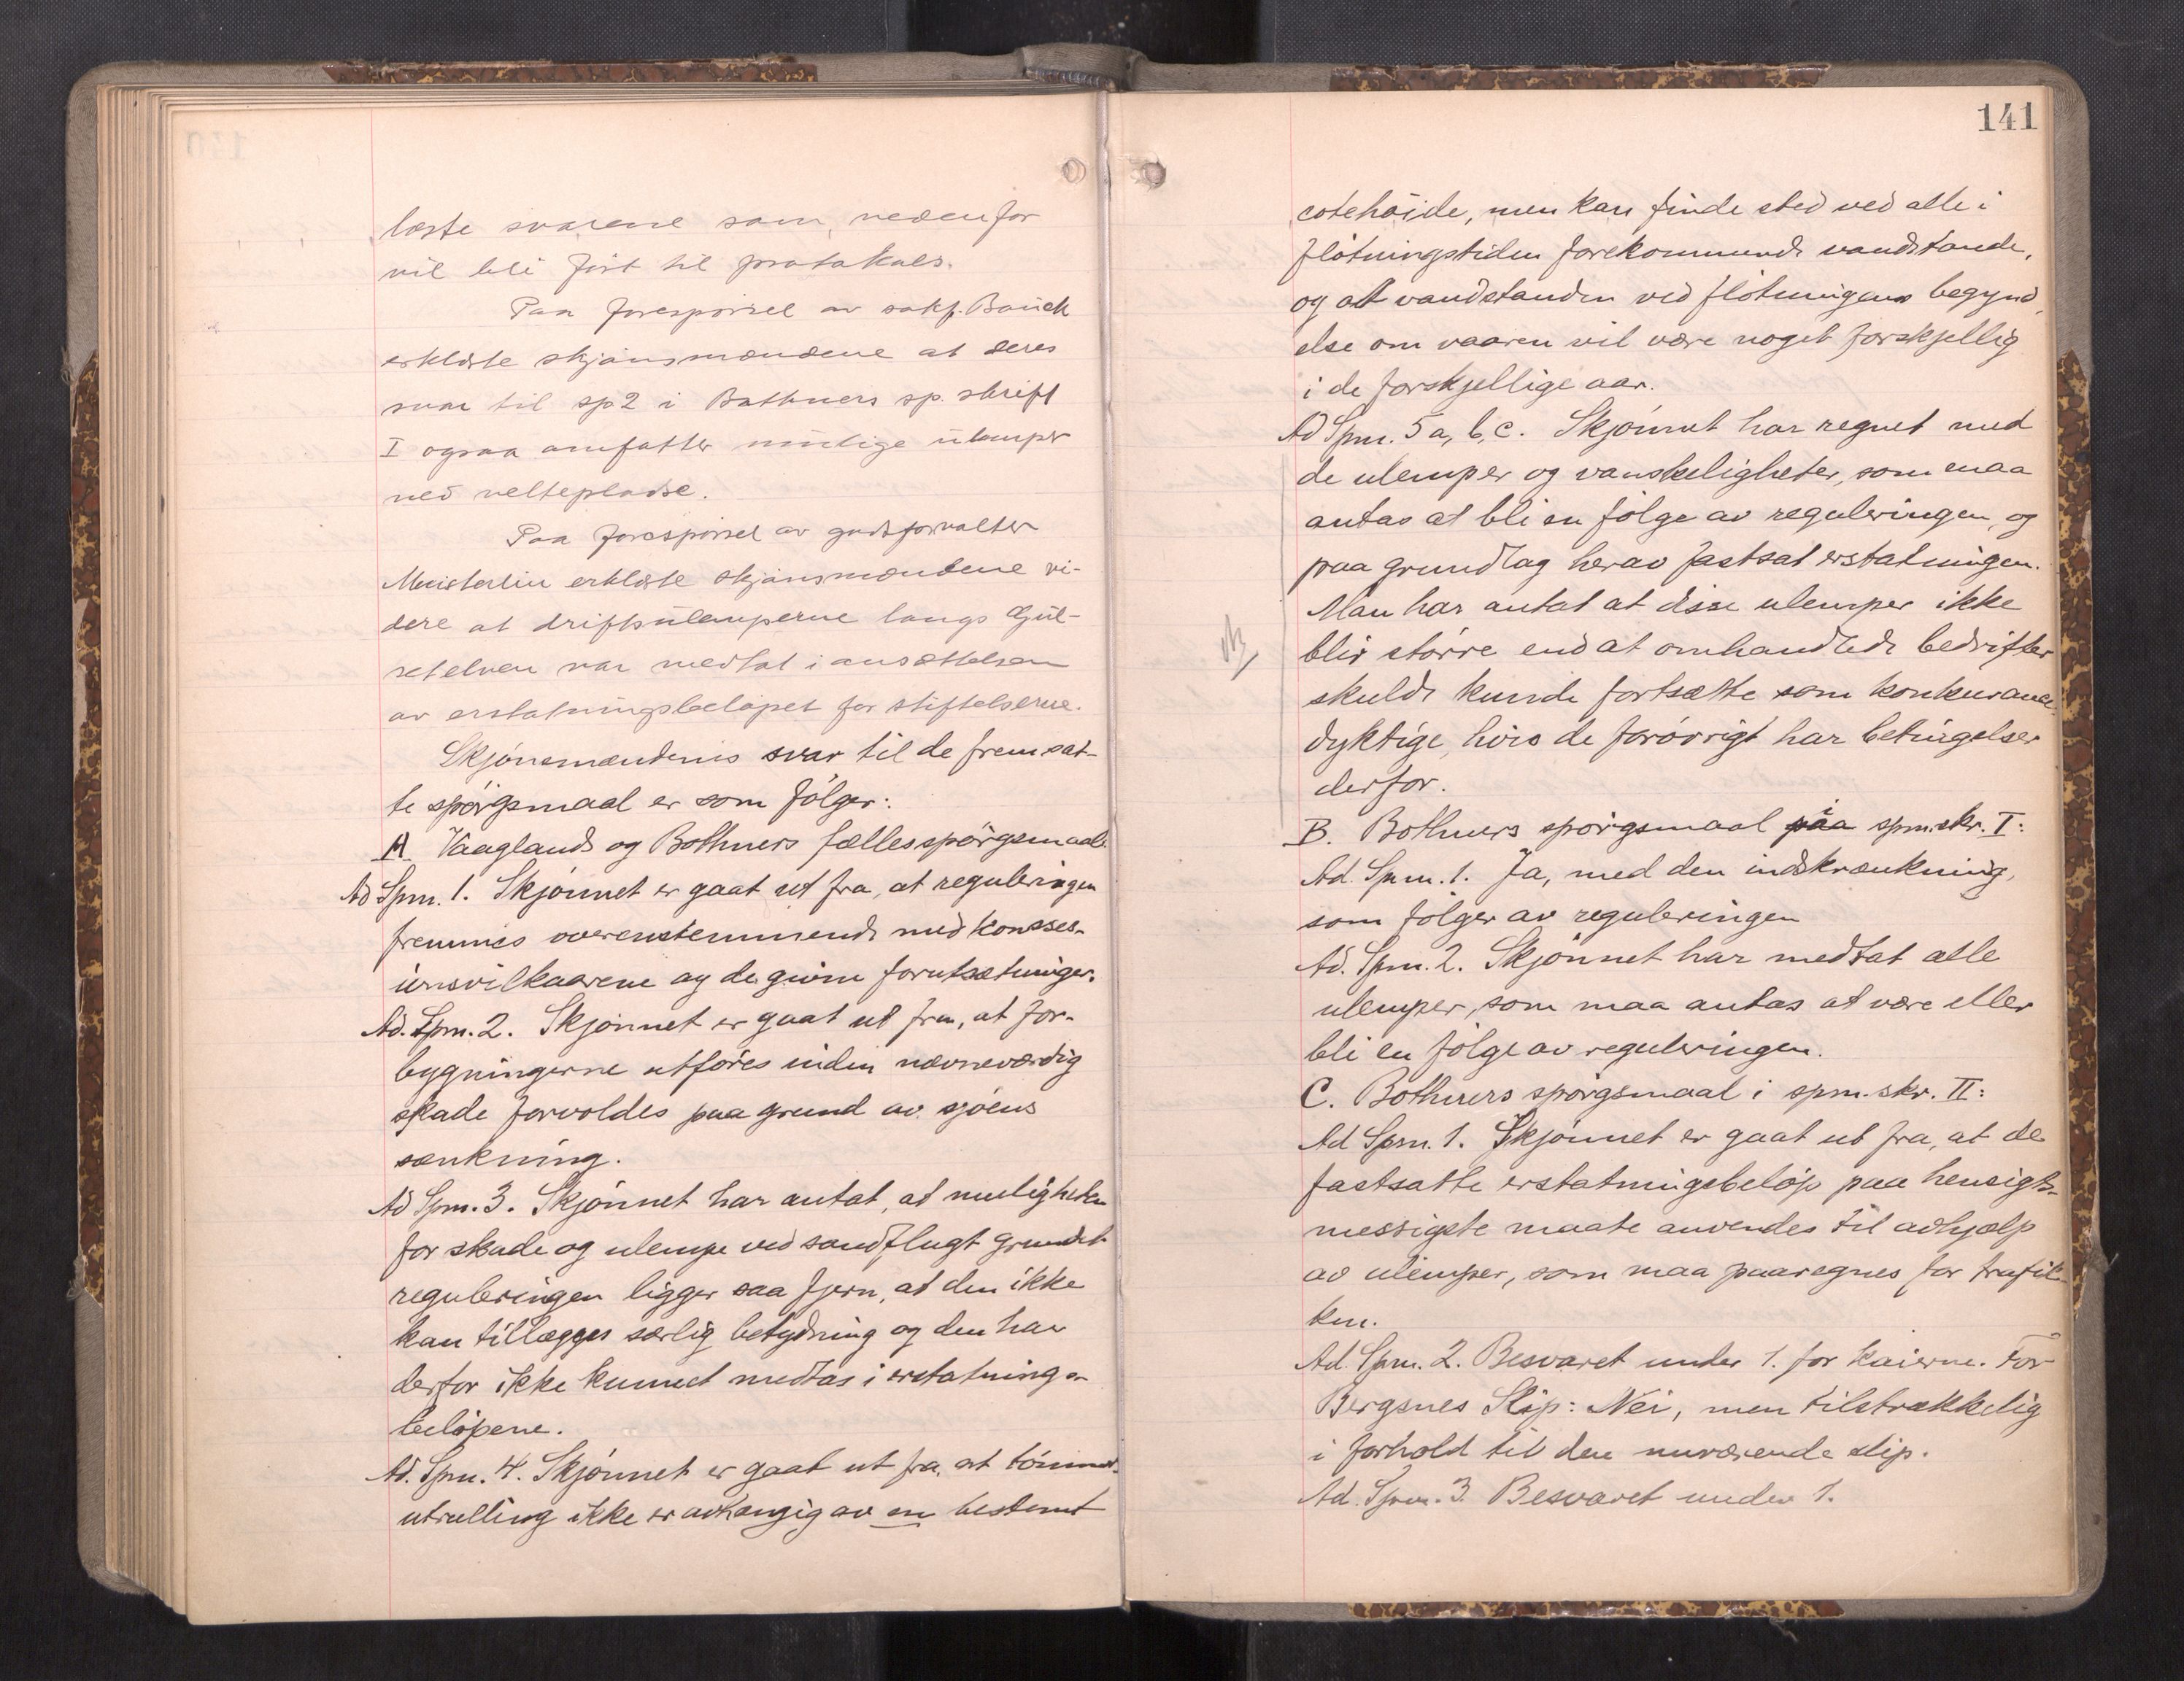 læste svarene som nedenfor
vil bli ført til protokols.
Paa forespørsel av sakf. Bauck
erklærte skjønsmændene at deres
svar til sp 2 i Bothners sp. skrift
I ogsaa omfatter mulige ulemper
ved veltepladse.
Paa forespørsel av godsforvalter
Münsterlin erklærte skjønsmændene vi-
dere at driftsulemperne langs
setelven var medtat i ansættelsen
av erstatningsbeløpet for stiftelserne.
Skjønsmændenes svar til de fremsat-
te spørgsmaal er som følger:
A Vaaglands og Bothners fællesspørgsmaal:
Ad Spm. 1. Skjønnet er gaat ut fra, at reguleringen
fremmes overenstemmende med konses-
ionsvilkaarene og de givne forutsætninger.
Ad. Spm. 2. Skjønnet er gaat ut fra, at for-
bygningerne utføres inden nævneværdig
skade forvoldes paa grund av sjøens
sænkning.
Ad Spm. 3. Skjønnet har antat, at muligheten
for skade og ulempe ved sandflugt grundet
reguleringen ligger saa fjern, at den ikke
kan tillægges særlig betydning og den har
derfor ikke kunnet medtas i erstatnings-
beløpene.
Ad. Spm. 4. Skjønnet er gaat ut fra, at tømmer-
utrulling ikke er avhængig av en bestemt
141
cotehøide, men kan finde sted ved alle i
fløtningstiden forekommende vandstande,
og at vandstanden ved fløtningens begynd-
else om vaaren vil være noget forskjellig
i de forskjellige aar.
Ad Spm. 5 a, b, c. Skjønnet har regnet med
de ulemper og vanskeligheter, som maa
antas at bli en følge av reguleringen, og
paa grundlag herav fastsat erstatningen.
Man har antat at disse ulemper ikke
blir større end at omhandlede bedrifter
skulde kunde fortsætte som konkurance-
dyktige, hvis de forøvrigt har betingelser
derfor.
B. Bothners spørgsmaal paa i spm.skr. I:
Ad. Spm. 1. Ja, med den indskrænkning,
som følger av reguleringen
Ad. Spm. 2. Skjønnet har medtat alle
ulemper, som maa antas at være eller
bli en følge av reguleringen.
C. Bothners spørgsmaal i spm.skr. II:
Ad Spm. 1. Skjønnet er gaat ut fra, at de
fastsatte erstatningsbeløp paa hensigts-
messigste maate anvendes til avhjælp
av ulemper, som maa paaregnes for trafik-
ken.
Ad. Spm. 2. Besvaret under 1. for kaierne. For
Bergsnes Slip: Nei, men tilstrækkelig
i forhold til den nuværende slip.
Ad. Spm. 3. Besvaret under 1.